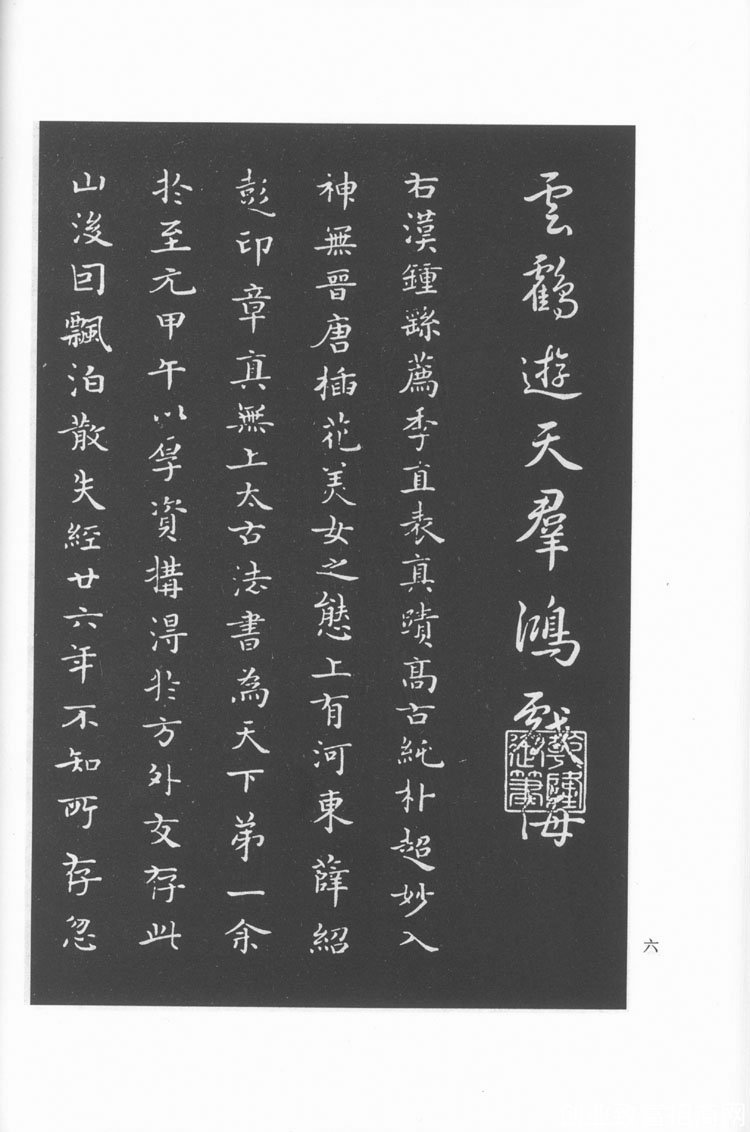 雲鶴遊天羣鴻戲海
右漢鍾繇薦季直表真蹟高古純朴超妙入
神無晉唐插花美女之態上有河東薛紹
彭印章真無上太古法書為天下第一余
於至元甲午以厚資購得於方外友存此
山後因飄泊散失經廿六年不知所存忽
六